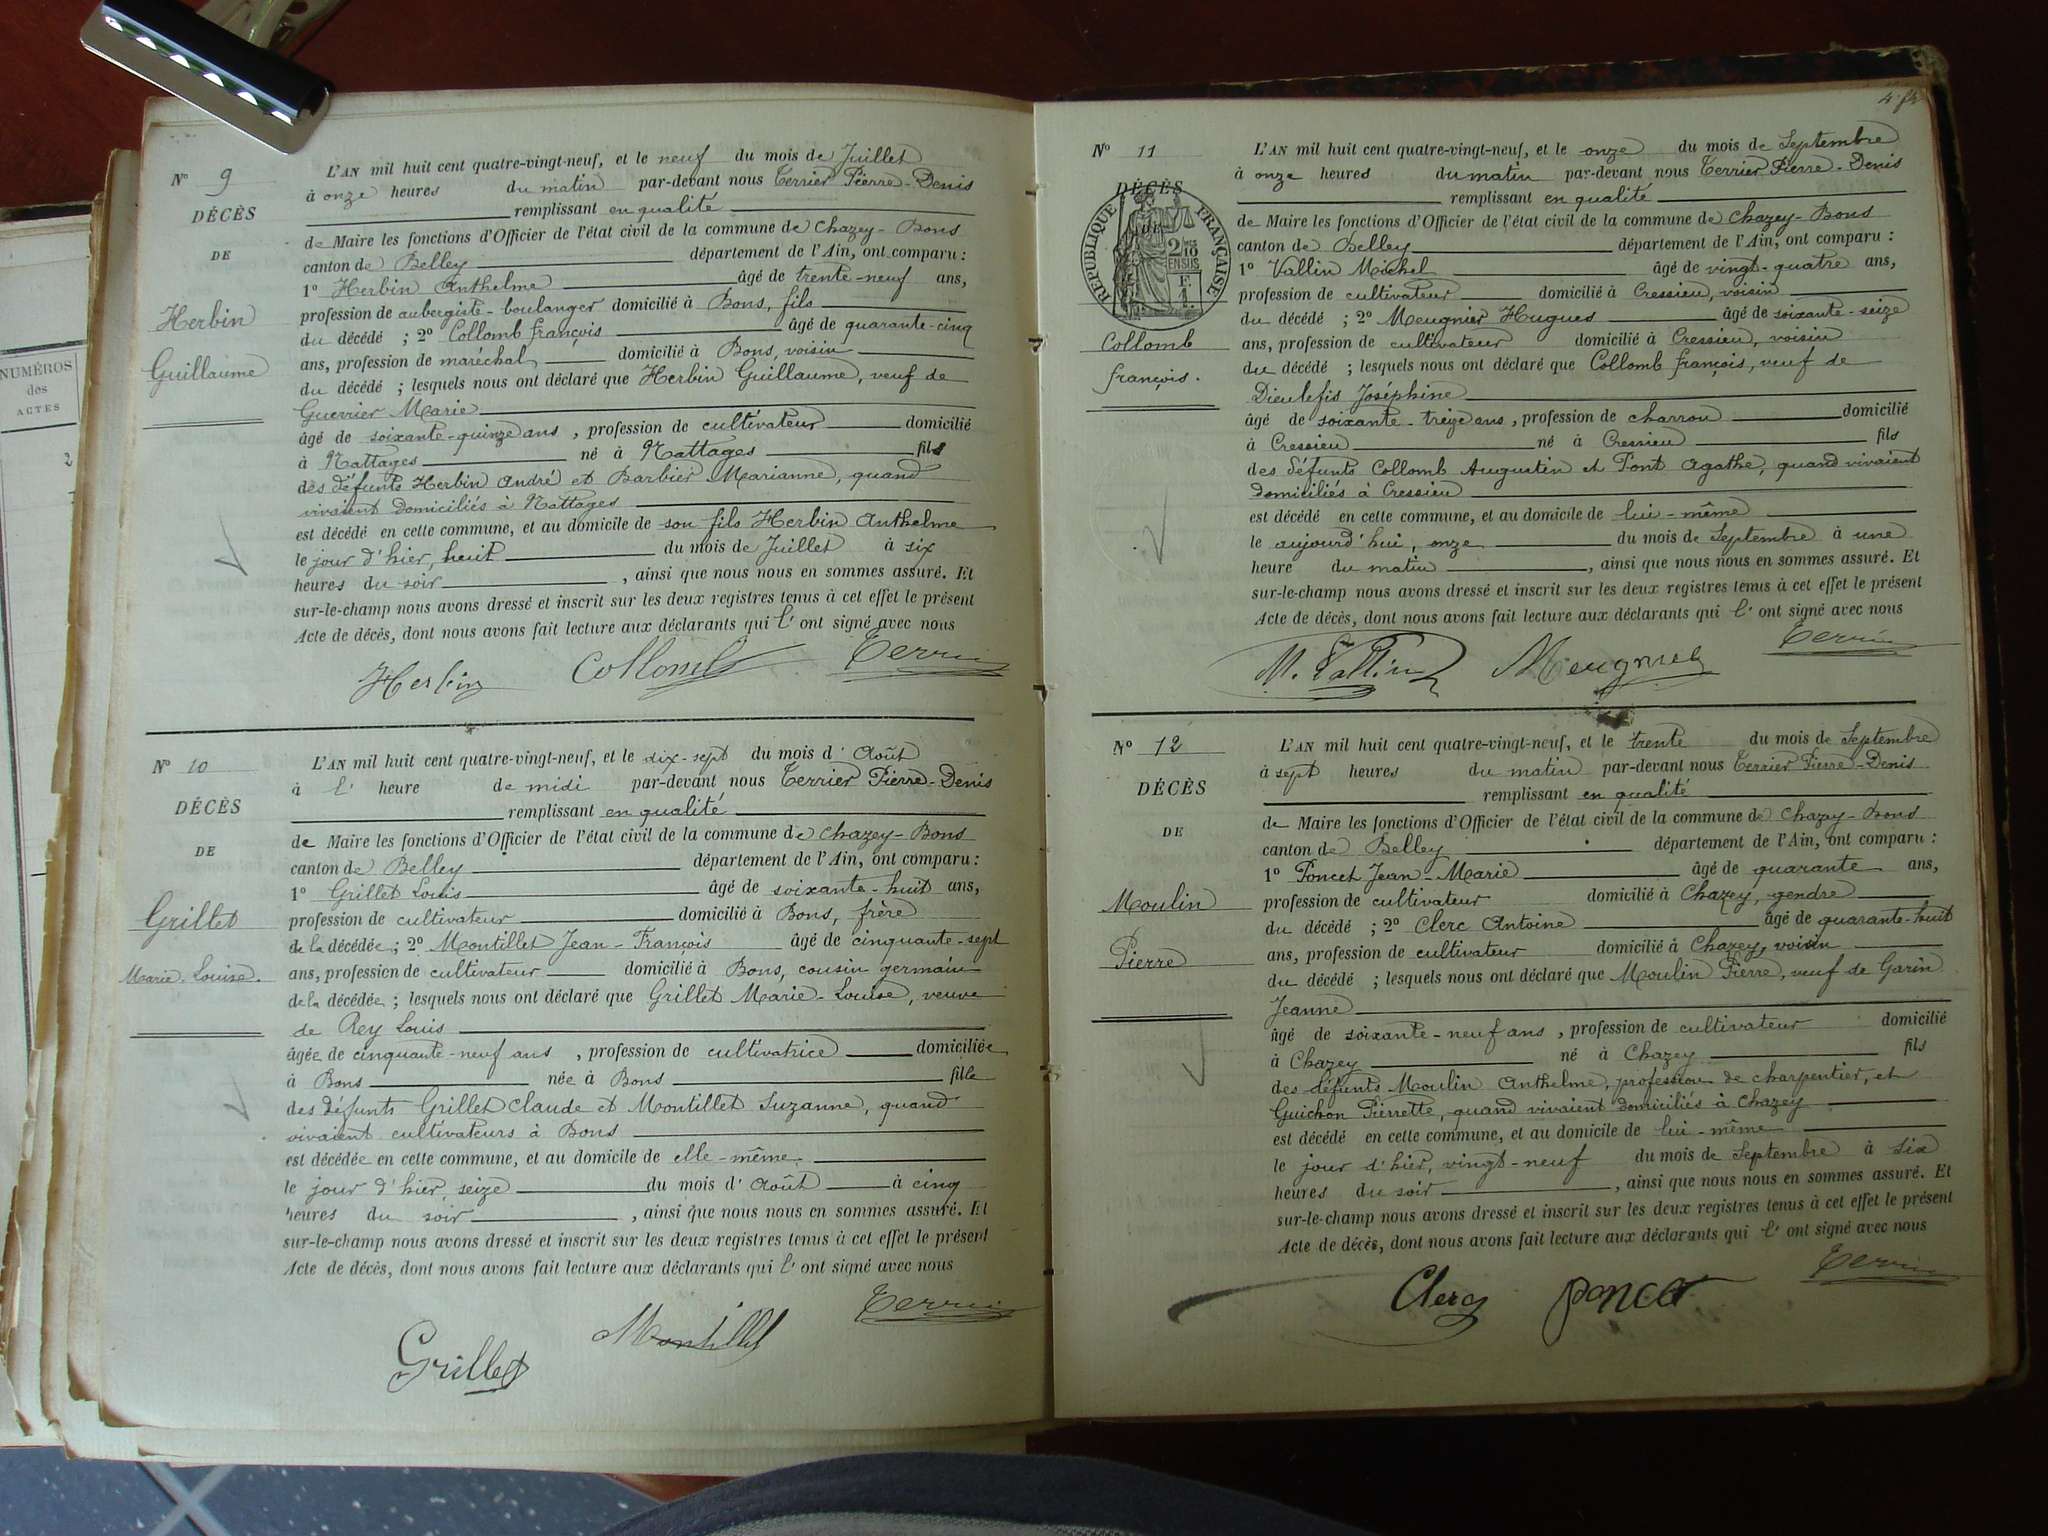 NUMÉROS
des
ACTES
2
N° 9
DÉCÈS
DE
Herbin
Guillaume
L'AN mil huit cent quatre-vingt-neuf, et le neuf du mois de Juillet
à onze heures du matin par-devant nous Terrier Pierre-Denis
remplissant en qualité
de Maire les fonctions d'Officier de l'état civil de la commune de Chazey-Bons
canton de Belley département de l'Ain, ont comparu :
1° Herbin Anthelme âgé de trente-neuf ans,
profession de aubergiste-boulanger domicilié à Bons, fils
du décédé ; 2° Collomb françois âgé de quarante-cinq
ans, profession de maréchal domicilié à Bons, voisin
du décédé ; lesquels nous ont déclaré que Herbin Guillaume, veuf de
Guerrier Marie
âgé de soixante-quinze ans, profession de cultivateur domicilié
à Nattages né à Nattages fils
des défunts Herbin André et Barbier Marianne, quand
vivaient domiciliés à Nattages
est décédé en cette commune, et au domicile de son fils Herbin Anthelme
le jour d'hier, huit du mois de Juillet à six
heures du soir, ainsi que nous nous en sommes assuré. Et
sur-le-champ nous avons dressé et inscrit sur les deux registres tenus à cet effet le présent
Acte de décès, dont nous avons fait lecture aux déclarants qui l'ont signé avec nous
Herbin Collomb Terrier
N° 10
DÉCÈS
DE
Grillet
Marie-Louise.
L'AN mil huit cent quatre-vingt-neuf, et le dix-sept du mois d'Août
à l'heure de midi par-devant nous Terrier Pierre-Denis
remplissant en qualité
de Maire les fonctions d'Officier de l'état civil de la commune de Chazey-Bons
canton de Belley département de l'Ain, ont comparu :
1° Grillet Louis âgé de soixante-huit ans,
profession de cultivateur domicilié à Bons, frère
de la décédée ; 2° Montillet Jean-François âgé de cinquante-sept
ans, profession de cultivateur domicilié à Bons, cousin germain
de la décédée ; lesquels nous ont déclaré que Grillet Marie-Louise, veuve
de Rey Louis
âgée de cinquante-neuf ans, profession de cultivatrice domiciliée
à Bons née à Bons fille
des défunts Grillet Claude et Montillet Suzanne, quand
vivaient cultivateurs à Bons
est décédée en cette commune, et au domicile de elle-même.
le jour d'hier, seize du mois d'Août à cinq
heures du soir, ainsi que nous nous en sommes assuré. Et
sur-le-champ nous avons dressé et inscrit sur les deux registres tenus à cet effet le présent
Acte de décès, dont nous avons fait lecture aux déclarants qui l'ont signé avec nous
Grillet Montillet Terrier
N° 11
DÉCÈS
DE
RÉPUBLIQUE FRANÇAISE
Collomb
françois.
L'AN mil huit cent quatre-vingt-neuf, et le onze du mois de Septembre
à onze heures du matin par-devant nous Terrier Pierre-Denis
remplissant en qualité
de Maire les fonctions d'Officier de l'état civil de la commune de Chazey-Bons
canton de Belley département de l'Ain, ont comparu :
1° Vallin Michel âgé de vingt-quatre ans,
profession de cultivateur domicilié à Cressieu, voisin
du décédé ; 2° Meugnier Hugues âgé de soixante-seize
ans, profession de cultivateur domicilié à Cressieu, voisin
du décédé ; lesquels nous ont déclaré que Collomb françois, veuf de
Dieulefis Joséphine
âgé de soixante-treize ans, profession de charron domicilié
à Cressieu né à Cressieu fils
des défunts Collomb Augustin et Pont Agathe, quand vivaient
domiciliés à Cressieu
est décédé en cette commune, et au domicile de lui-même
le aujourd'hui, onze du mois de Septembre à une
heure du matin, ainsi que nous nous en sommes assuré. Et
sur-le-champ nous avons dressé et inscrit sur les deux registres tenus à cet effet le présent
Acte de décès, dont nous avons fait lecture aux déclarants qui l'ont signé avec nous
M. Vallin Meugnier Terrier
N° 12
DÉCÈS
DE
Moulin
Pierre
L'AN mil huit cent quatre-vingt-neuf, et le trente du mois de Septembre
à sept heures du matin par-devant nous Terrier Pierre-Denis
remplissant en qualité
de Maire les fonctions d'Officier de l'état civil de la commune de Chazey-Bons
canton de Belley département de l'Ain, ont comparu :
1° Poncet Jean-Marie âgé de quarante ans,
profession de cultivateur domicilié à Chazey, gendre
du décédé ; 2° Clerc Antoine âgé de quarante-huit
ans, profession de cultivateur domicilié à Chazey, voisin
du décédé ; lesquels nous ont déclaré que Moulin Pierre, veuf de Garin
Jeanne
âgé de soixante-neuf ans, profession de cultivateur domicilié
à Chazey né à Chazey fils
des défunts Moulin Anthelme, profession de charpentier, et
Guichon Pierrette, quand vivaient domiciliés à Chazey
est décédé en cette commune, et au domicile de lui-même
le jour d'hier, vingt-neuf du mois de Septembre à six
heures du soir, ainsi que nous nous en sommes assuré. Et
sur-le-champ nous avons dressé et inscrit sur les deux registres tenus à cet effet le présent
Acte de décès, dont nous avons fait lecture aux déclarants qui l'ont signé avec nous
Clerc poncet Terrier